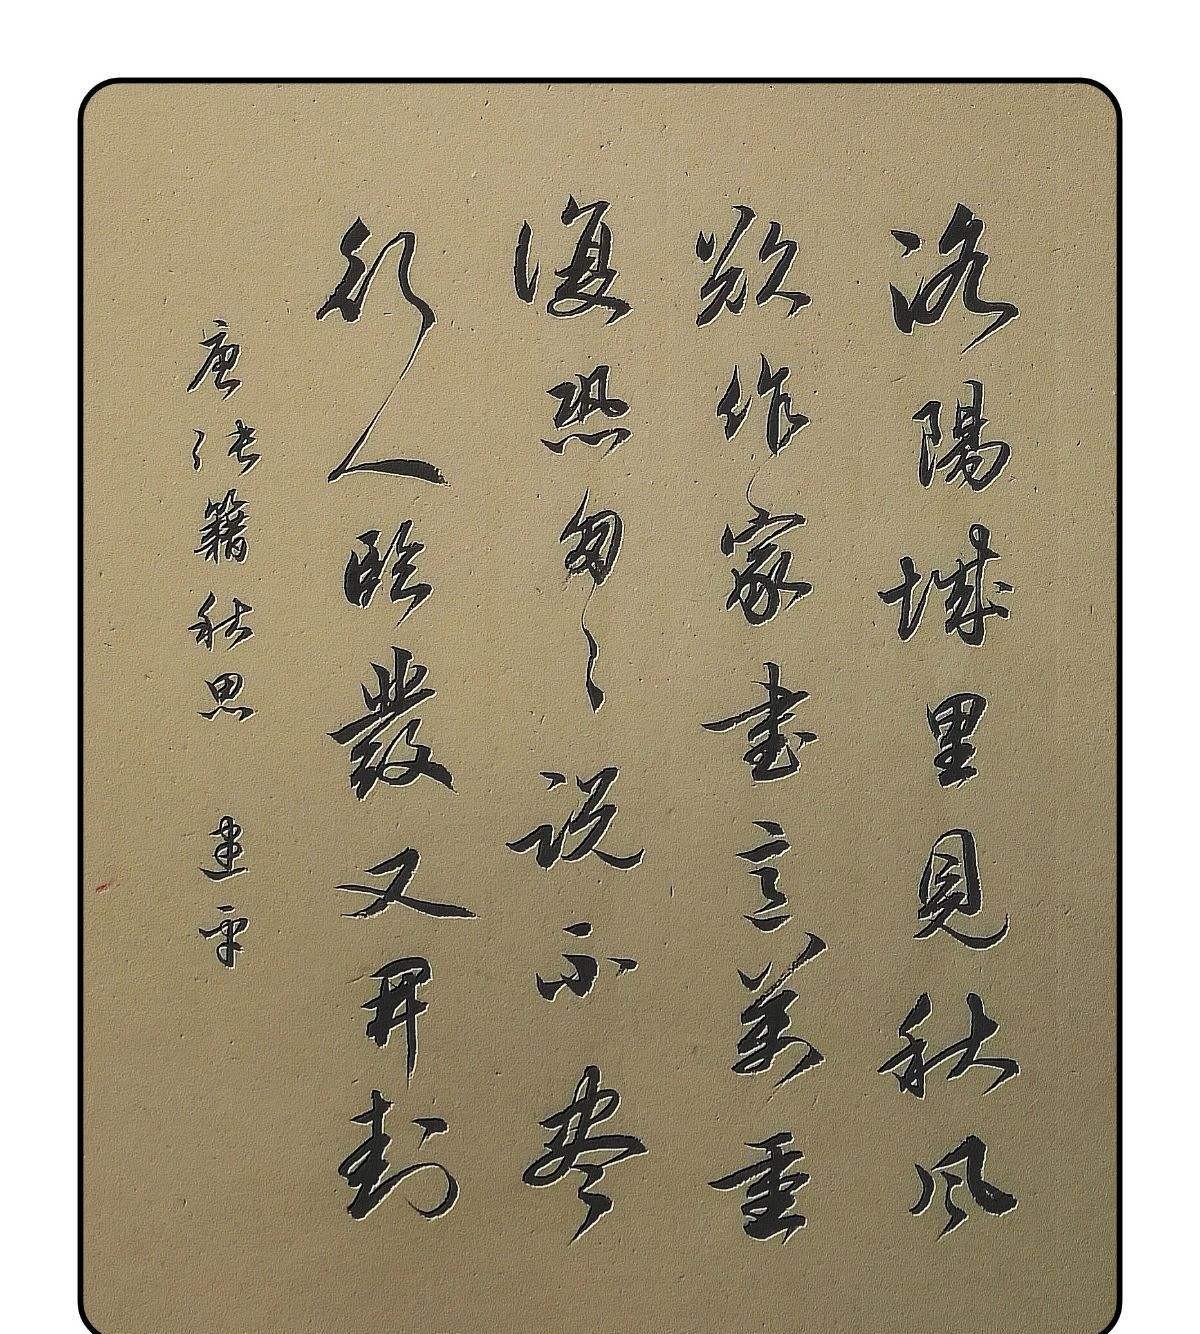 洛陽城里見秋風
欲作家書意萬重
復恐匆〻説不盡
行人臨發又開封
唐張籍秋思 建平